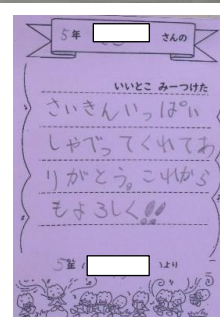 5年 さんの
いいとこ みーつけた
さいきんいっぱい
しゃべってくれてあ
りがとう。これから
もよろしく!!
5年 より